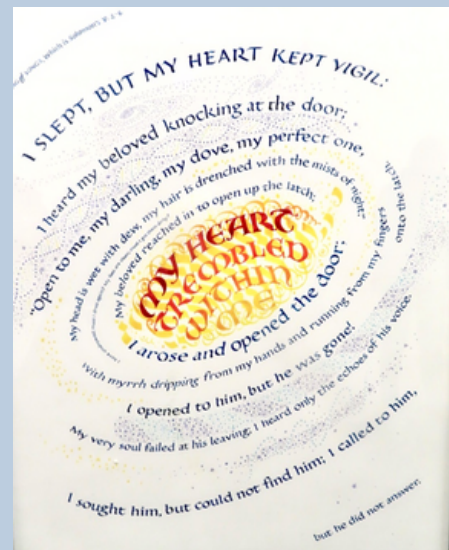 I SLEPT, BUT MY HEART KEPT VIGIL:
I heard my beloved knocking at the door;
"Open to me, my darling, my dove, my perfect one,
My head is wet with dew, my hair is drenched with the mists of night;"
My beloved reached in to open up the latch;
MY HEART
TREMBLED
WITHIN
ME
I arose and opened the door;
With myrrh dripping from my hands and running from my fingers
onto the latch.
I opened to him, but he was gone!
My very soul failed at his leaving; I heard only the echoes of his voice.
I sought him, but could not find him; I called to him,
but he did not answer.